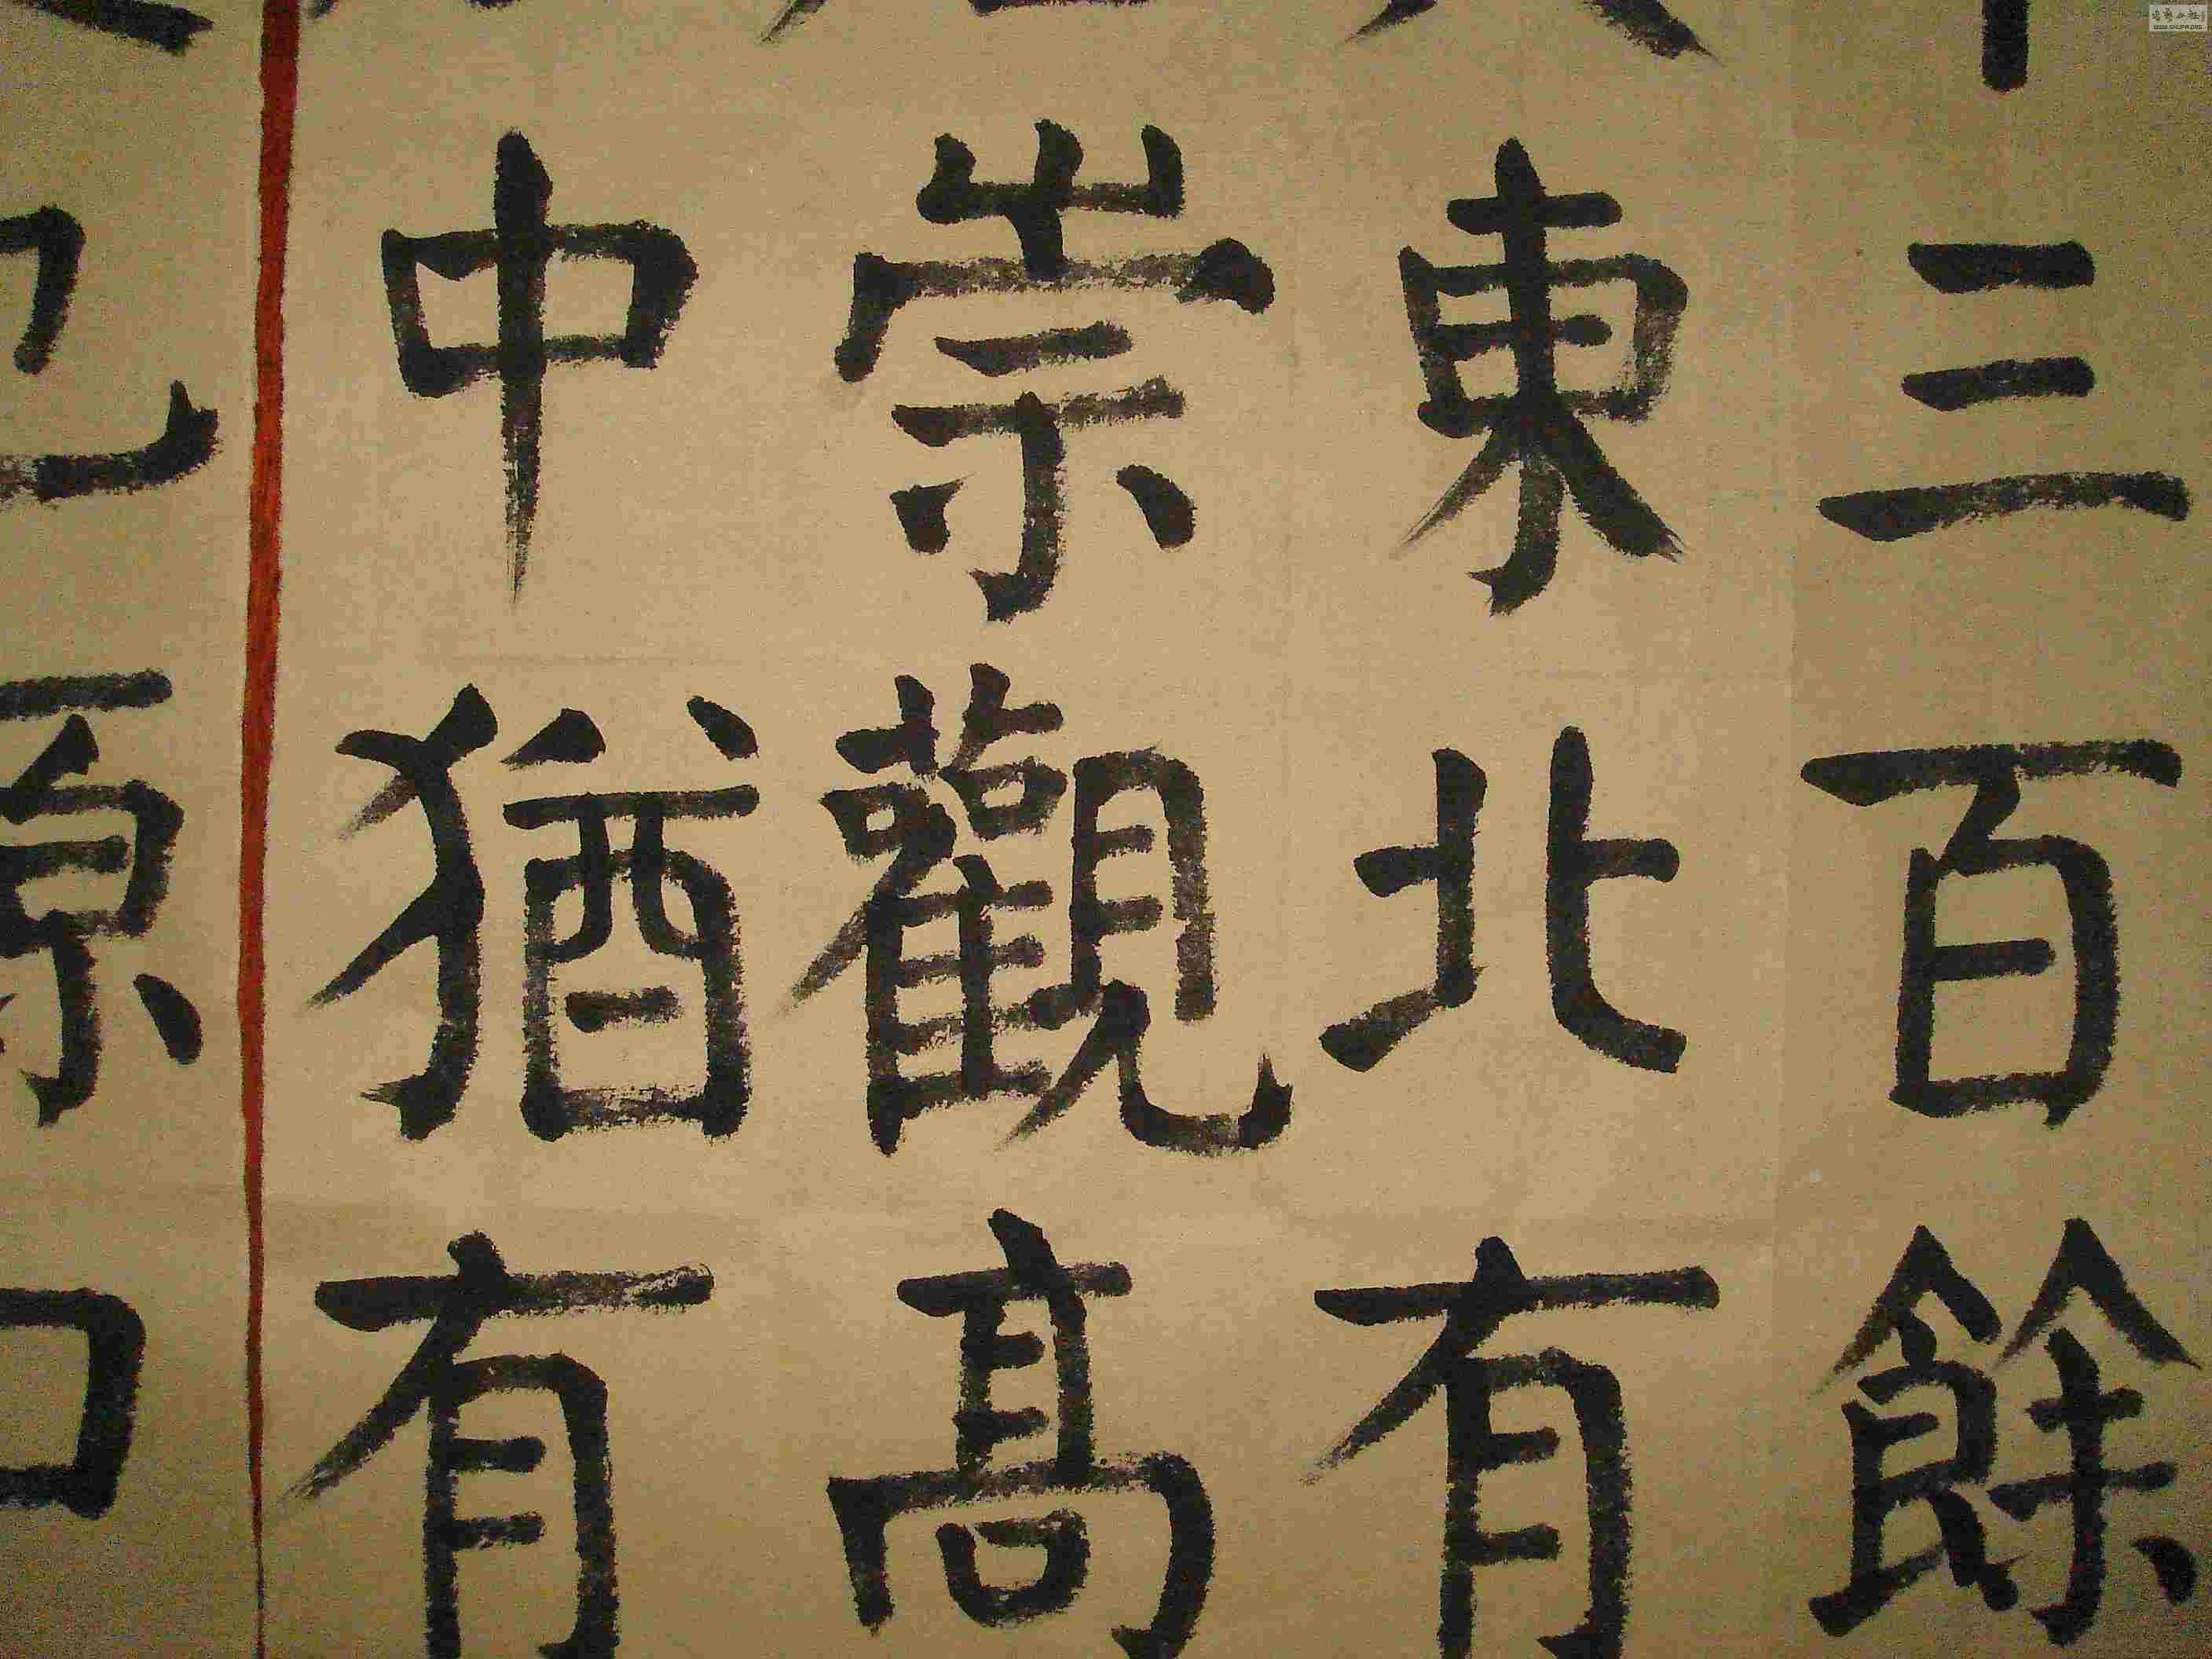 三百餘
東北有
崇觀高
中猶有
原